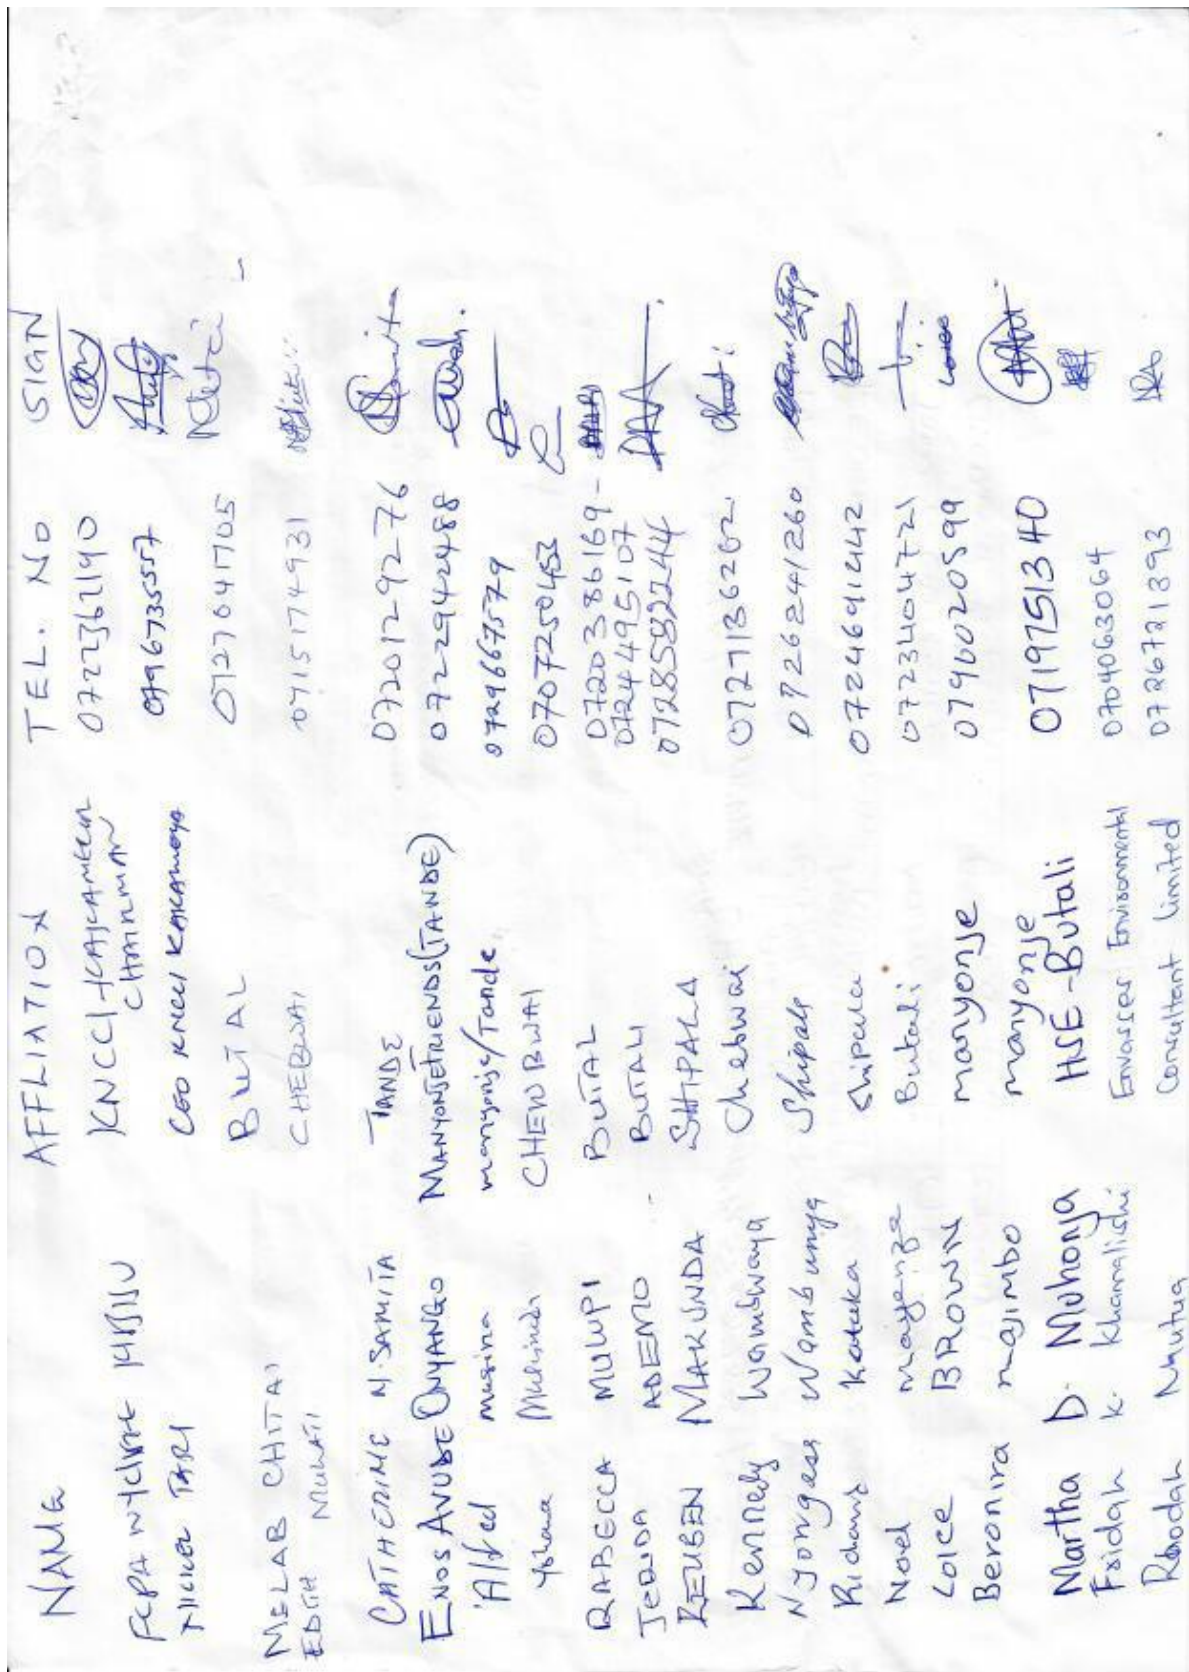 NAME AFFLIATION TEL. NO SIGN
FCPA WYCLIFFE KNCCI - CHAIRMAN 0722362190
CEO KNCCI 0796735557
MELAB CHITAI 0727041705
EDITH CHEBWAI 0715174931
CATHERINE N SAMITA TANDE 0720129276
ENOS AVUDE ONYANGO MANYONJE FRIENDS (TANDE) 0722942488
Alfred musina manyonje/Tande 0729667579
0707250453
RABECCA MULUPI BUTAL 0720386169 -
JERIDA ADEMO BUTALI 0724495107
REUBEN MAKUNDA SHIPALA 0728582244
Kennedy Wambwaya Chebwai 0727136262
Nyongesa Wambunya Shipala 0726241260
Katuka Shipala 0724691442
Noel mayenze Butali 0723404721
LOICE BROWN manyonje 0790020599
Beronira majimbo manyonje
Martha D. Muhonja HSE - Butali 0719751340
Fridah K. Khamalishi Envasses Environmental 0704063064
Rhodah Mutua Consultant Limited 0726721393